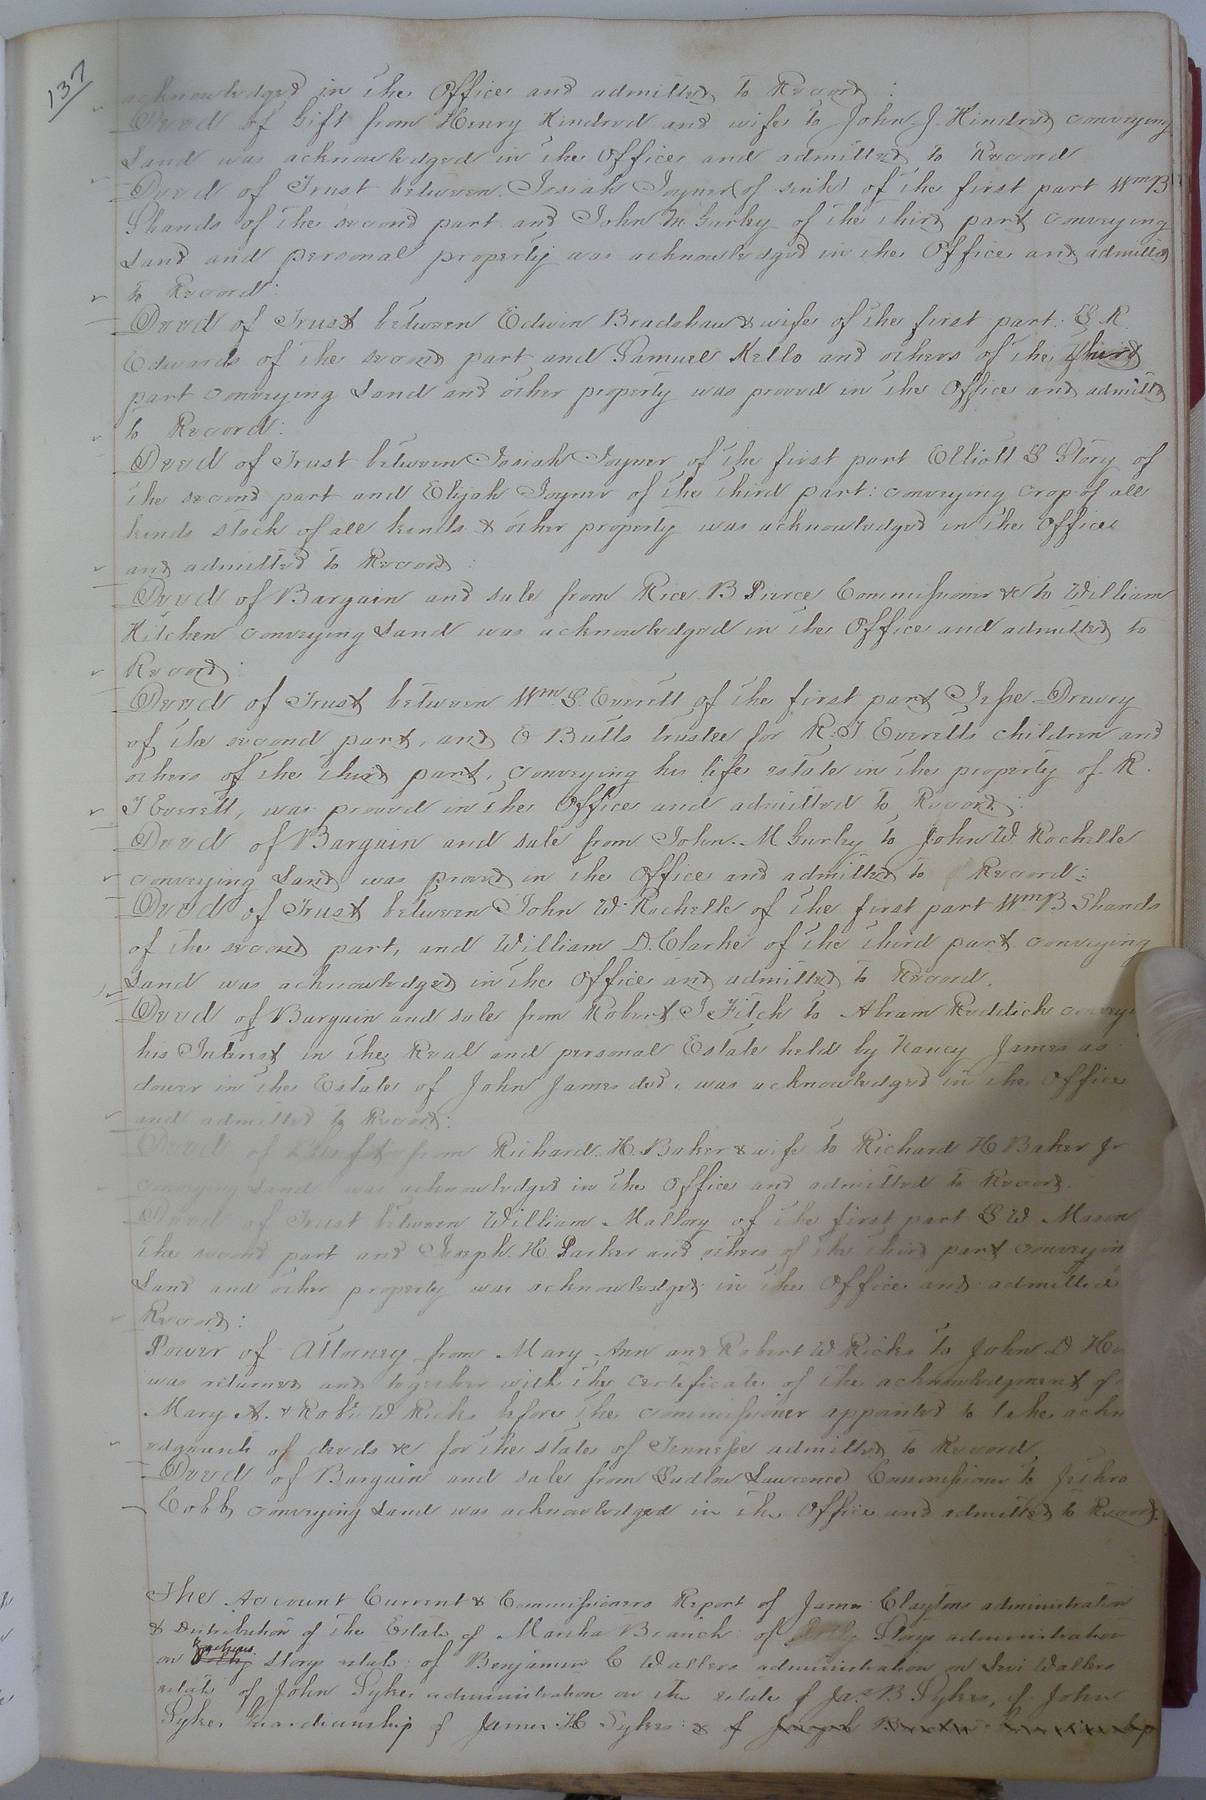 137
acknowledged in the Office and admitted to Record :
Deed of Gift from Henry Kindred and wife to John J. Kindred conveying
Land was acknowledged in the Office and admitted to Record
Deed of Trust between Josiah Joyner (of of the first part Wm B
Shands of the second part and John M Gurley of the third part conveying
Land and personal property was acknowledged in the Office and admitted
to Record :
Deed of Trust between Edwin Bradshaw & wife of the first part. E R.
Edwards of the second part and Samuel Kello and others of the third
part conveying Land and other property was proved in the Office and admitted
to Record :
Deed of Trust between Josiah Joyner of the first part Elliott S Story of
the second part and Elijah Joyner of the third part : conveying crop of all
kinds stock of all kinds & other property was acknowledged in the Office
and admitted to Record :
Deed of Bargain and sale from Rice B. Pierce Commissioner &c to William
Kitchen conveying Land was acknowledged in the Office and admitted to
Record :
Deed of Trust between Wm. S. Everett of the first part Jesse Drewry
of the second part, and E Butts trustee for R. T Everetts children and
others of the third part, conveying his life estate in the property of R.
T Everett, was proved in the Office and admitted to Record :
Deed of Bargain and sale from John. M Gurley to John W Rochelle
conveying Land was proved in the Office and admitted to Record :
Deed of Trust between John W. Rochelle of the first part Wm B Shands
of the second part, and William D. Clarke of the third part conveying
Land was acknowledged in the Office and admitted to Record.
Deed of Bargain and sale from Robert J Fitch to Abram Reddick convey
his Interest in the Real and personal Estate held by Nancy James as
dower in the Estate of John James decd, was acknowledged in the Office
and admitted to Record :
Deed of from Richard. H. Baker & wife to Richard H Baker Jr
conveying Land was acknowledged in the Office and admitted to Record.
Deed of Trust between William Mallory of the first part S W Mason
the second part and Joseph. H. Parker and others of the third part conveyin
Land and other property was acknowledged in the Office and admitted
Record :
Power of Attorney from Mary Ann and Robert W Ricks to John D
was returned and together with the certificate of the acknowledgment of
Mary A. & Robt W Ricks before the commissioner appointed to take ackn
edgments of deeds &c for the state of Tennessee admitted to Record
Deed of Bargain and sale from Ludlow Lawrence Commissioner to Jethro
Cobb, conveying Land was acknowledged in the Office and admitted to Record.
The Account Current & Commissioners Report of James Claytons administration
& distribution of the Estate of Martha Branch : of Storys administration
on Storys estate : of Benjamin C Wallers administration on Levi Wallers
estate of John Sykes administration on the estate of Jas. B. Sykes, of John
Sykes Guardianship of James H Sykes : & of Joseph Guardianship